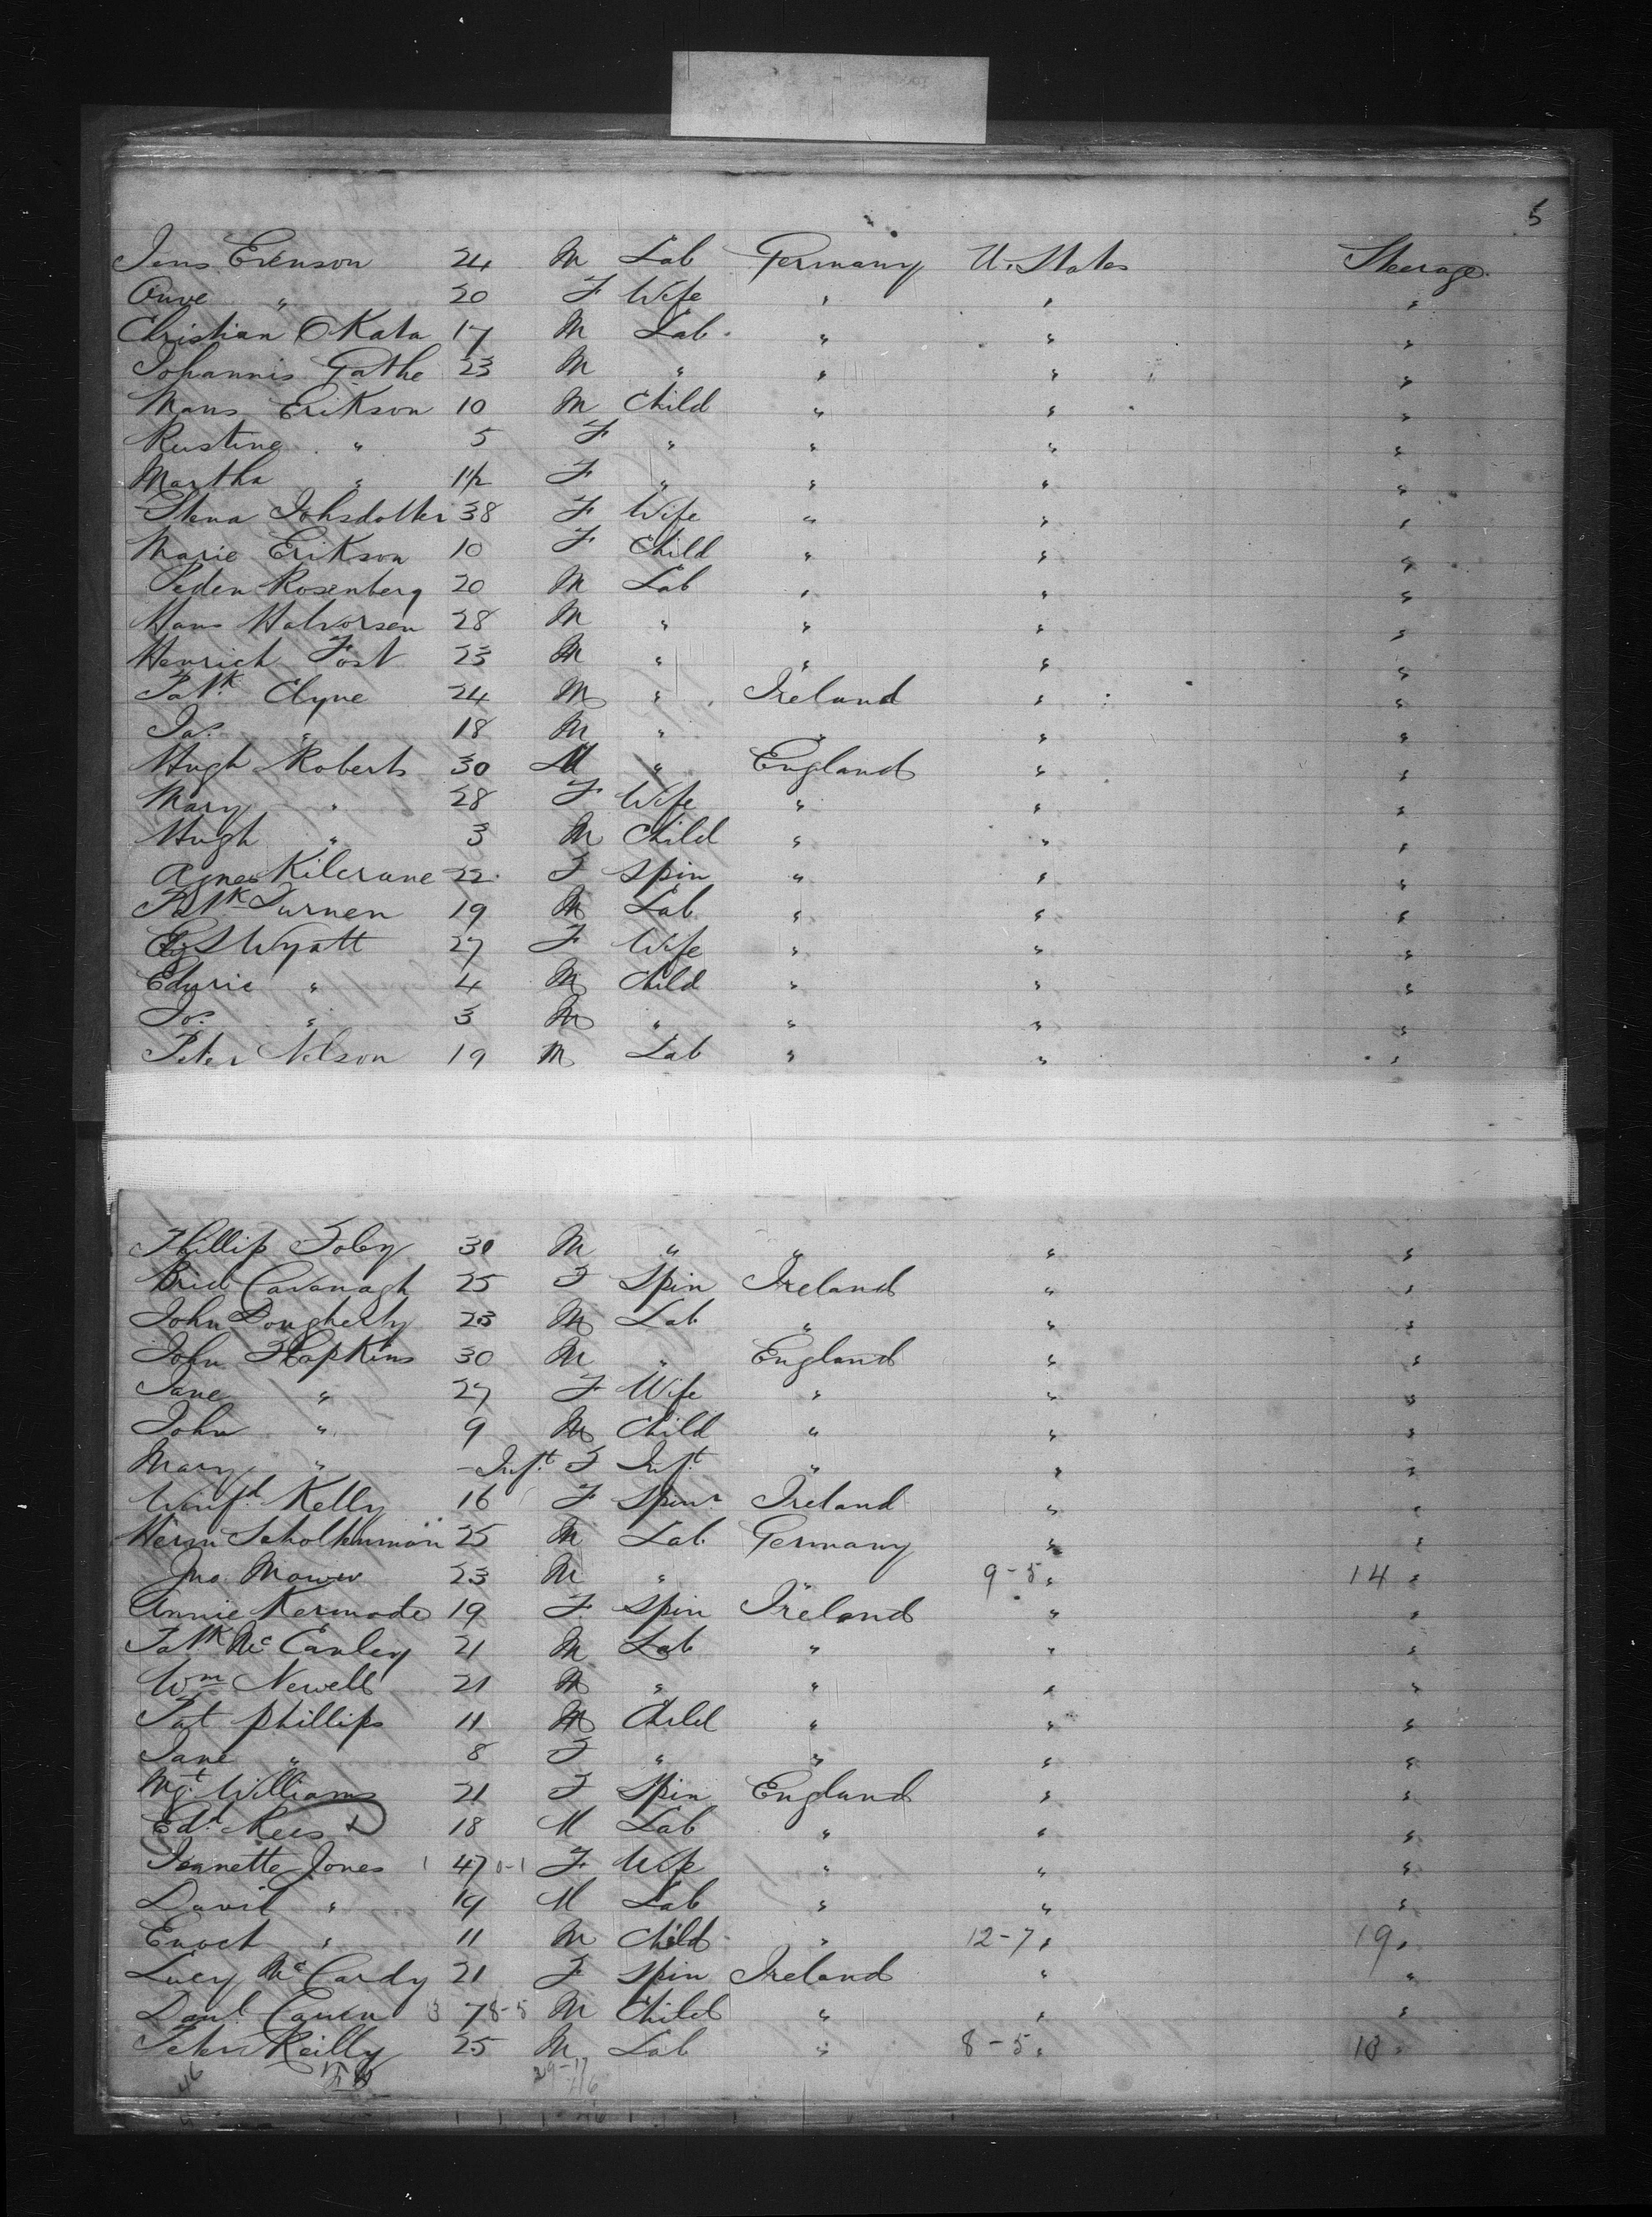 5
Jens Evenson 24 M Lab Germany U. States Steerage
Anve " 20 F Wife " " "
Christian OKata 17 M Lab " " "
Johannis Gathe 23 M " " " "
Mans Erikson 10 M Child " " "
Kustine " 5 F " " " "
Martha " 1 1/2 F " " " "
Stena Johsdotter 38 F Wife " " "
Marie Erikson 10 F Child " " "
Peden Rosenberg 20 M Lab " " "
Hans Halvorsen 28 M " " " "
Henrich Fost 23 M " " " "
Patk Clyne 24 M " Ireland " "
Jas. " 18 M " " " "
Hugh Roberts 30 M " England " "
Mary " 28 F Wife " " "
Hugh " 3 M Child " " "
Agnes Kilcrane 22 F Spin " " "
Patk Turnen 19 M Lab " " "
Wyatt 27 F Wife " " "
Eduric " 4 M Child " " "
Jos. " 3 M " " " "
Peter Nelson 19 M Lab " " "
Phillip Foley 30 M " " " "
Brid Cavanagh 25 F Spin Ireland " "
John Dougherty 23 M Lab " " "
John Hopkins 30 M " England " "
Jane " 27 F Wife " " "
John " 9 M Child " " "
Mary " - Inft F Inft " " "
Winifd Kelly 16 F Spinr Ireland " "
Herm 25 M Lab Germany " "
Jno Mower 23 M " " 9-5 " 14 "
Annie Kermode 19 F Spin Ireland " "
Patk McCauley 21 M Lab " " "
Wm Newell 21 M " " " "
Pat Phillips 11 M Child " " "
Jane " 8 F " " " "
Mgt Williams 21 F Spin England " "
Edd Rees 18 M Lab " " "
Jeanette Jones 1 47 0-1 F Wife " " "
David " 19 M Lab " " "
Enoch " 11 M Child " 12-7 " 19 "
Lucy McCardy 21 F Spin Ireland " "
Danl 3 7 8-5 M Child " " "
Peter Reilly 25 M Lab " 8-5 " 13 "
46 29-17
46